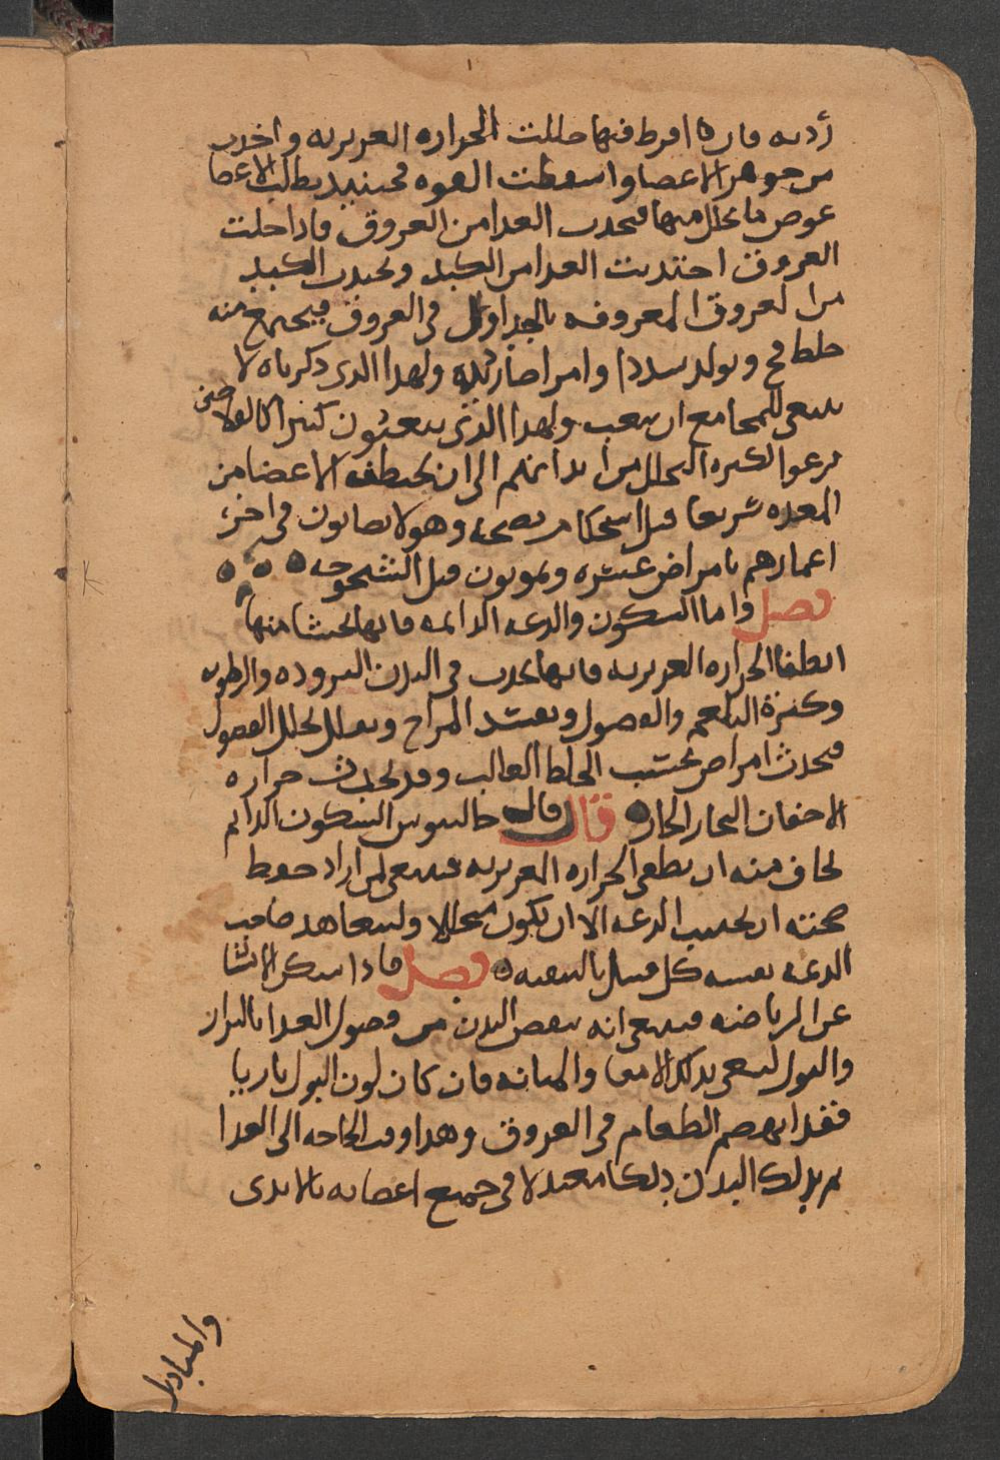 رديه فان افرط فيها حللت الحراره الغريزيه واخذت
من جوهر الاعضا واسقطت القوه فحينيذ يطلب الاعضا
عوض ما تحلل منها فتجذب الغذا من العروق فاذا خلت
العروق اجتذبت الغذا من الكبد وتجذب الكبد
من العروق المعروفه بالجداول في العروق فيجتمع منه
خلط فج ويولد سددا وامراضا رديه ولهذا الذي ذكرناه لا
ينبغي للمجامع ان يتعب ولهذا الذين يتعبون كثيرا كالفلاحين
لكثره التحلل من ابدانهم الى ان تختطف الاعضا من
المعده سريعا قبل استحكام نضجه وهولا يصابون في اخر
اعمارهم بامراض عسره ويموتون قبل الشيخوخه
فصل واما السكون والدعه الدايمه فانها تحتشا منها
انطفا الحراره الغريزيه فانها تحدث في البدن البروده والرطوبه
وكثرة البلغم والفضول ويفسد المزاج ويقلل تحلل الفضول
فيحدث امراض بحسب الخلط الغالب وقد تحدث حراره
لاحتقان البخار الحار قال قال جالينوس السكون الدايم
يخاف منه ان يطفي الحراره الغريزيه فينبغي لمن اراد حفظ
صحته ان يجتنب الدعه الا ان يكون متحللا وليتعاهد صاحب
الدعه نفسه كل قليل بالتنقيه فصل فاذا امسك الانسان
عن الرياضه فينبغي انه ينقص البدن من فضول الغذا بالبراز
والبول لينقي بذلك الامعا والمثانه فان كان لون البول ناريا
فقد انهضم الطعام في العروق وهذا وقت الحاجه الى الغذا
ثم يدلك البدن دلكا معتدلا في جميع اعضايه بالايدي
والمناديل